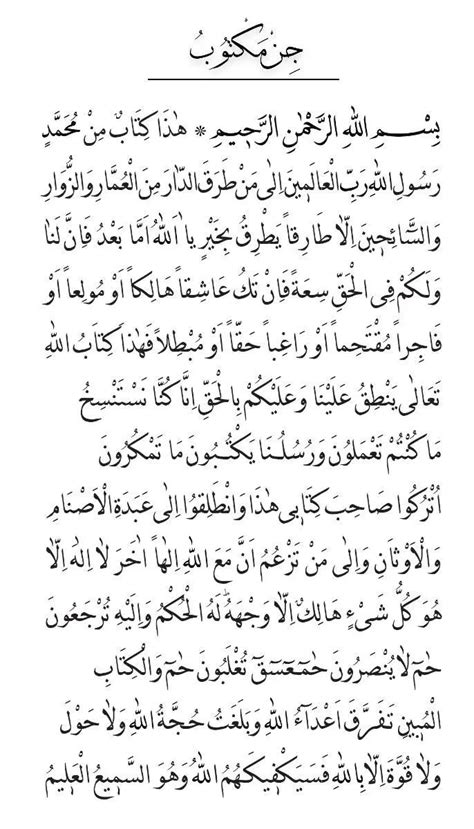 جِنْ مَكْتُوبُ
بِسْمِ اللهِ الرَّحْمٰنِ الرَّحِيمِ * هٰذَا كِتَابٌ مِنْ مُحَمَّدٍ
رَسُولِ اللهِ رَبِّ الْعَالَمِينَ اِلٰى مَنْ طَرَقَ الدَّارَ مِنَ الْعُمَّارِ وَالزُّوَّارِ
وَالسَّائِحِينَ اِلَّا طَارِقاً يَطْرِقُ بِخَيْرٍ يَا اَللهُ اَمَّا بَعْدُ فَاِنَّ لَنَا
وَلَكُمْ فِي الْحَقِّ سِعَةً فَاِنْ تَكُ عَاشِقاً هَالِكاً اَوْ مُولِعاً اَوْ
فَاجِراً مُقْتَحِماً اَوْ رَاغِباً حَقّاً اَوْ مُبْطِلاً فَهٰذَا كِتَابُ اللهِ
تَعَالٰى يَنْطِقُ عَلَيْنَا وَعَلَيْكُمْ بِالْحَقِّ اِنَّا كُنَّا نَسْتَنْسِخُ
مَا كُنْتُمْ تَعْمَلُونَ وَرُسُلُنَا يَكْتُبُونَ مَا تَمْكُرُونَ
اُتْرُكُوا صَاحِبَ كِتَابِي هٰذَا وَانْطَلِقُوا اِلٰى عَبَدَةِ الْاَصْنَامِ
وَالْاَوْثَانِ وَاِلٰى مَنْ تَزْعُمُ اَنَّ مَعَ اللهِ اِلٰهاً اٰخَرَ لَا اِلٰهَ اِلَّا
هُوَ كُلُّ شَیْءٍ هَالِكٌ اِلَّا وَجْهَهُ لَهُ الْحُكْمُ وَاِلَيْهِ تُرْجَعُونَ
حٰمۤ لَا يُنْصَرُونَ حٰمۤ عۤسۤقۤ تُغْلَبُونَ حٰمۤ وَالْكِتَابِ
الْمُبِينِ تَفَرَّقَ اَعْدَاءُ اللهِ وَبَلَغَتْ حُجَّةُ اللهِ وَلَا حَوْلَ
وَلَا قُوَّةَ اِلَّا بِاللهِ فَسَيَكْفِيكَهُمُ اللهُ وَهُوَ السَّمِيعُ الْعَلِيمُ